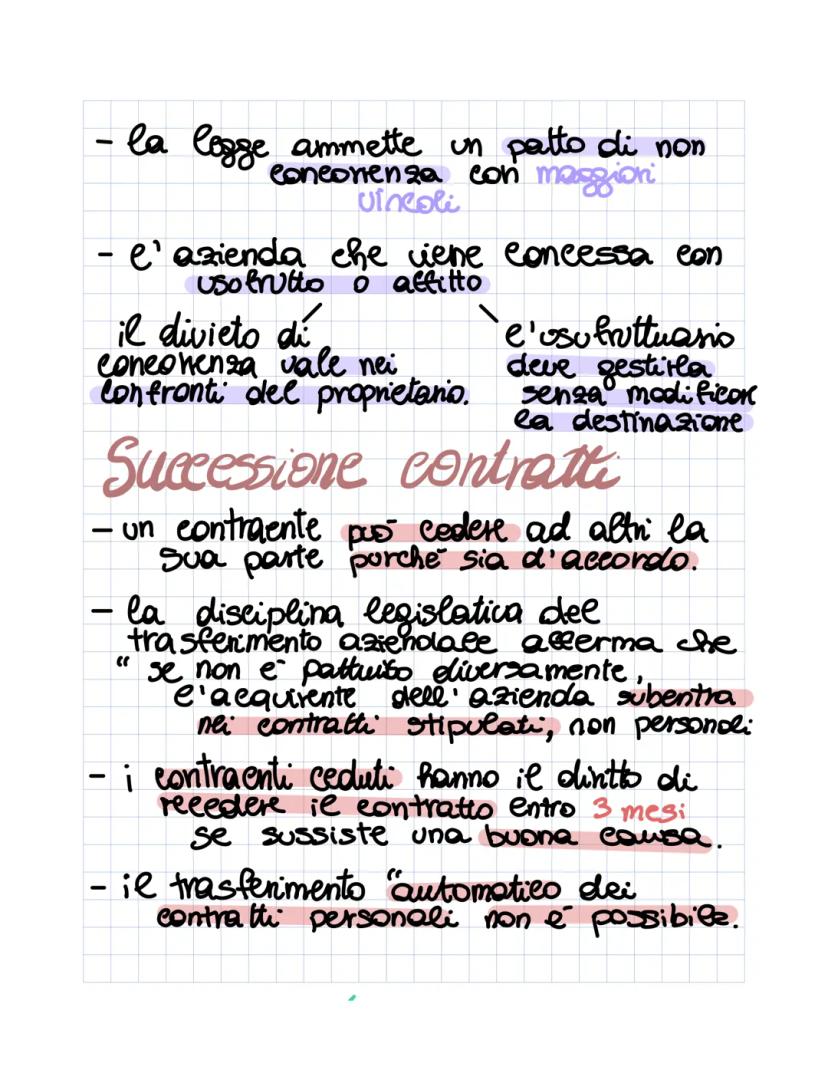 - la legge ammette un patto di non
concorrenza con maggiori
vincoli
- l'azienda che viene concessa con
usofrutto o affitto
il divieto di
concorrenza vale nei
confronti del proprietario.
l'usufruttuario
deve gestirla
senza modificare
la destinazione
Successione contratti
- un contraente può cedere ad altri la
sua parte purché sia d'accordo.
- la disciplina legislativa del
trasferimento aziendale afferma che
" se non è pattuito diversamente,
l'acquirente dell'azienda subentra
nei contratti stipulati, non personali
- i contraenti ceduti hanno il diritto di
recedere il contratto entro 3 mesi
se sussiste una buona causa.
- il trasferimento "automatico dei
contratti personali non è possibile.